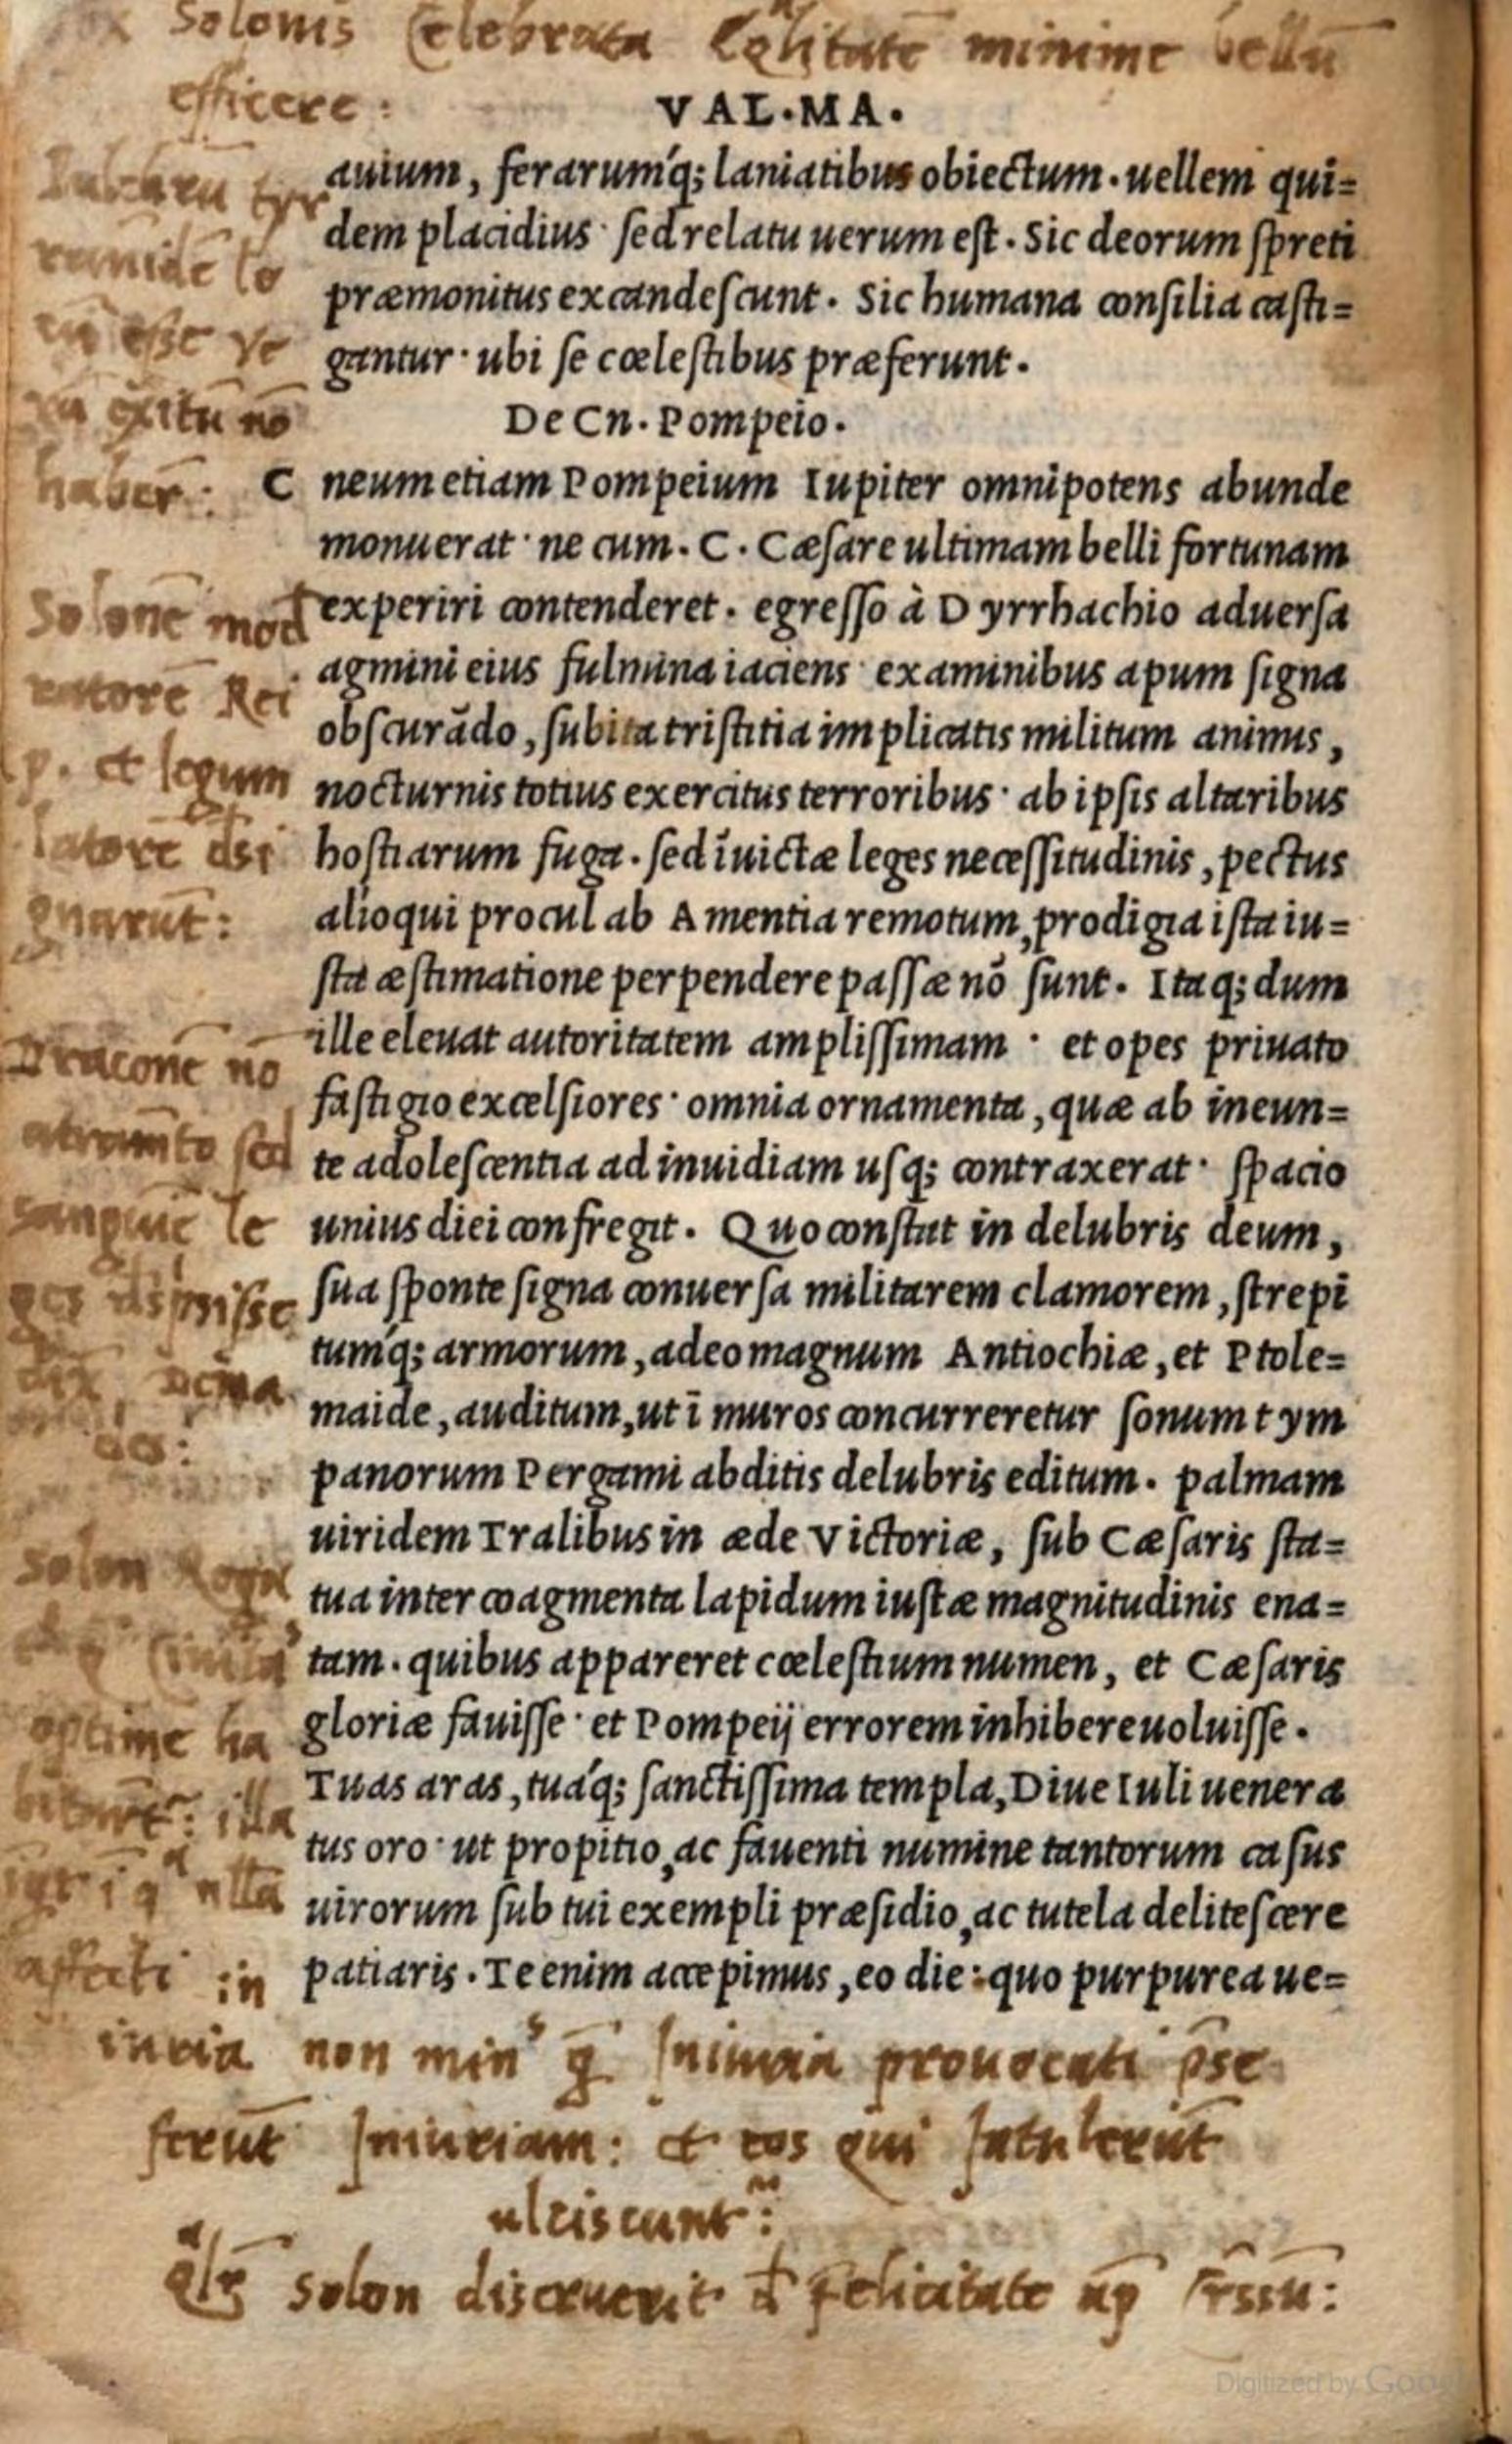 Solonis Celebrata Eqlitatē minime bellū
efficere:
VAL.MA.
auium, ferarumq́; laniatibus obiectum. uellem qui=
dem placidius· sed relatu uerum est. Sic deorum spreti
præmonitus excandescunt. Sic humana consilia casti=
gantur· ubi se cœlestibus præferunt.
De Cn. Pompeio.
C neum etiam Pompeium Iupiter omnipotens abunde
monuerat· ne cum. C. Cæsare ultimam belli fortunam
experiri contenderet. egresso à Dyrrhachio aduersa
agmini eius fulmina iaciens· examinibus apum signa
obscurādo, subita tristitia implicatis militum animis,
nocturnis totius exercitus terroribus· ab ipsis altaribus
hostiarum fuga. sed īuictæ leges necessitudinis, pectus
alioqui procul ab Amentia remotum, prodigia ista iu=
sta æstimatione perpendere passæ nō sunt. Itaq; dum
ille eleuat autoritatem amplissimam · et opes priuato
fastigio excelsiores· omnia ornamenta, quæ ab ineun=
te adolescentia ad inuidiam usq; contraxerat· spacio
unius diei confregit. Quo constat in delubris deum,
sua sponte signa conuersa militarem clamorem, strepi
tumq́; armorum, adeo magnum Antiochiæ, et Ptole=
maide, auditum, ut ī muros concurreretur sonum tym
panorum Pergami abditis delubris editum. palmam
uiridem Tralibus in æde Victoriæ, sub Cæsaris sta=
tua inter coagmenta lapidum iustæ magnitudinis ena=
tam. quibus appareret cœlestium numen, et Cæsaris
gloriæ fauisse· et Pompeij errorem inhibere uoluisse.
Tuas aras, tuaq́; sanctissima templa, Diue Iuli uenera
tus oro· ut propitio, ac fauenti numine tantorum casus
uirorum sub tui exempli præsidio, ac tutela delitescere
patiaris. Te enim accepimus, eo die: quo purpurea ue=
rānidē lo
haber:
Solonē mod
ratorē Rei
p. et legum
latorē dsi
gnarūt:
Draconē nō
sed
sanguīe le
Solon
optime ha
illa
in
iuria non min' q̄ Iniuria prouocati
ferūt Iniuriam: et eos qui Intulerūt
ulciscunt:
solon discruerit felicitate